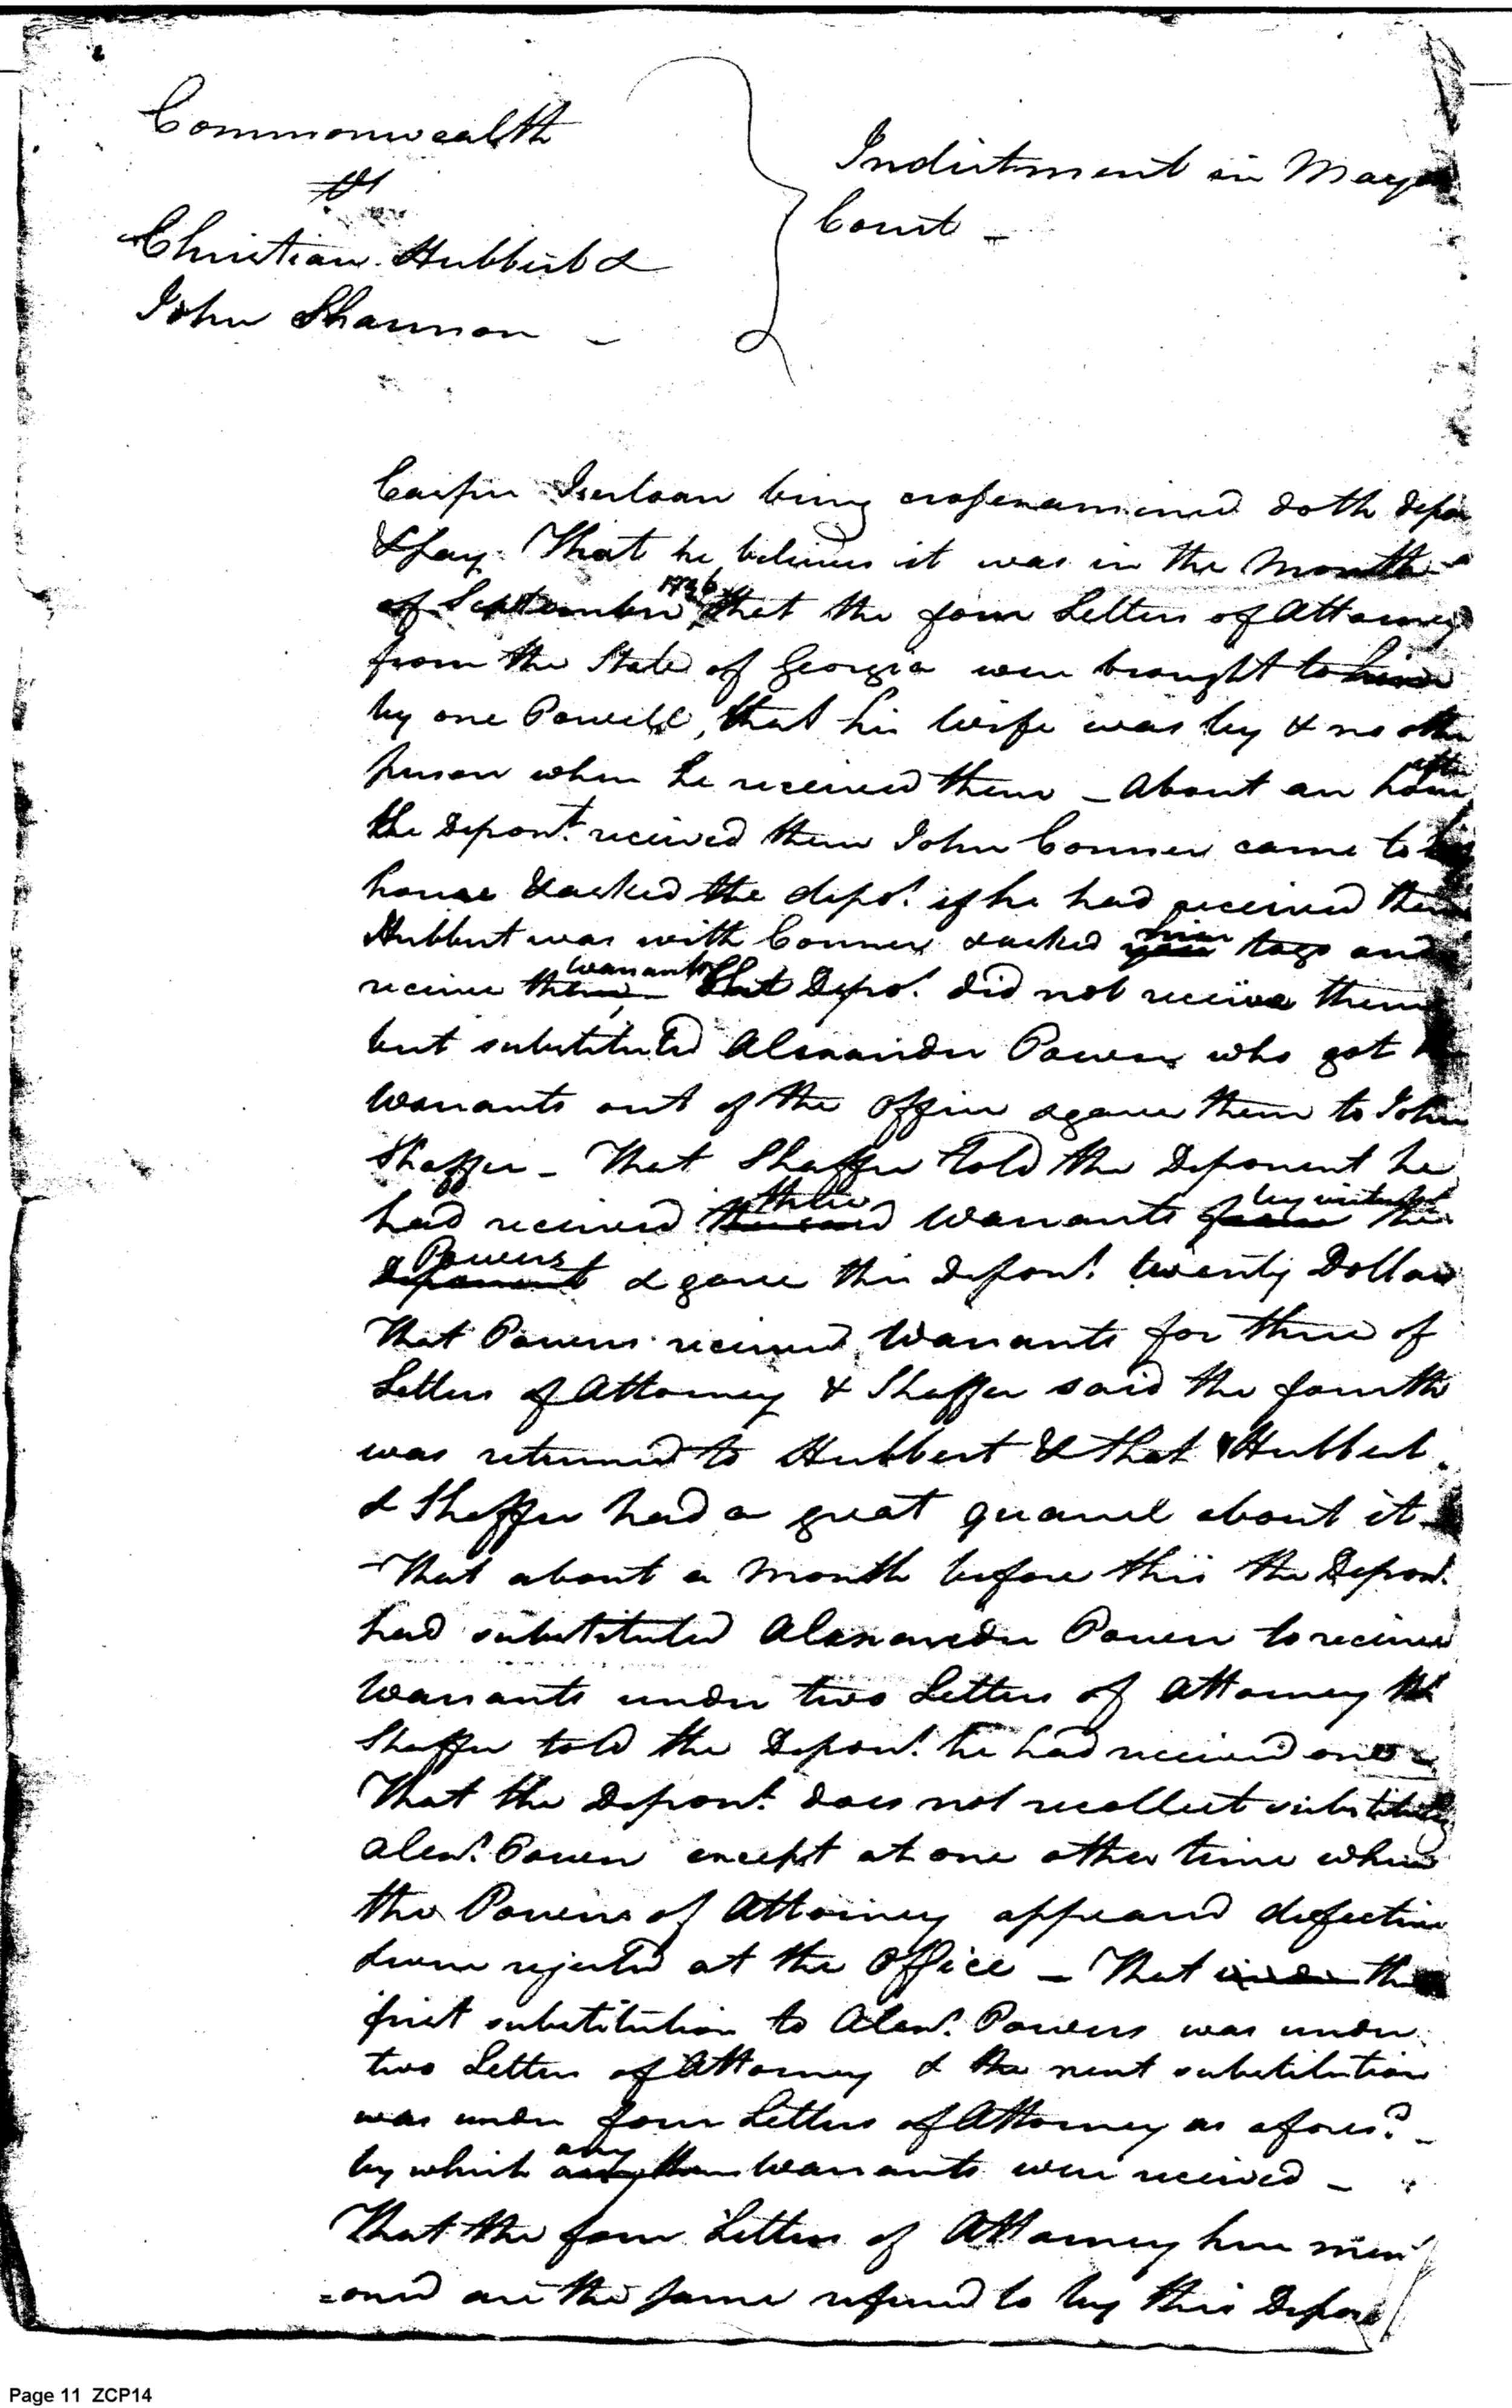 Commonwealth
vs
Christian Hubbert &
John Shannon —
Indictment in Mayo
Court —
Casper Iserloan being crossexamined doth depo
& say. That he believes it was in the Month
of September 1786 that the four Letters of Attorney
from the State of Georgia were brought to him
by one Powell, that his Wife was by & no other
person when he received them — About an hour after
the Depont. received them John Conner came to his
house & asked the depot. if he had received them
Hubbert was with Conner & asked him to go and
receive Warrants that Depot. did not receive them
but substituted Alexander Power who got
Warrants out of the Office & gave them to John
Shaffer — That Shaffer told the Deponent he
had received three Warrants by virtue of the
Powers & gave this Depont. twenty Dollars
That Powers received Warrants for three of
Letters of Attorney & Shaffer said the fourth
was returned to Hubbert & that Hubbert
& Shaffer had a great quarrel about it
That about a Month before this the Depont.
had substituted Alexander Power to receive
Warrants under two Letters of Attorney tht
Shaffer told the Depont. he had received one
That the Depont. does not recollect substituting
Alexr. Power except at one other time when
the Powers of Attorney appeared defective
& were rejected at the Office — That under the
first substitution to Alexr. Powers was under
two Letters of Attorney & the next substitution
was under four Letters of Attorney as afores.d —
by which any Warrants were received —
That the four Letters of Attorney here men
=oned are the same refered to by this Depont
Page 11 ZCP14